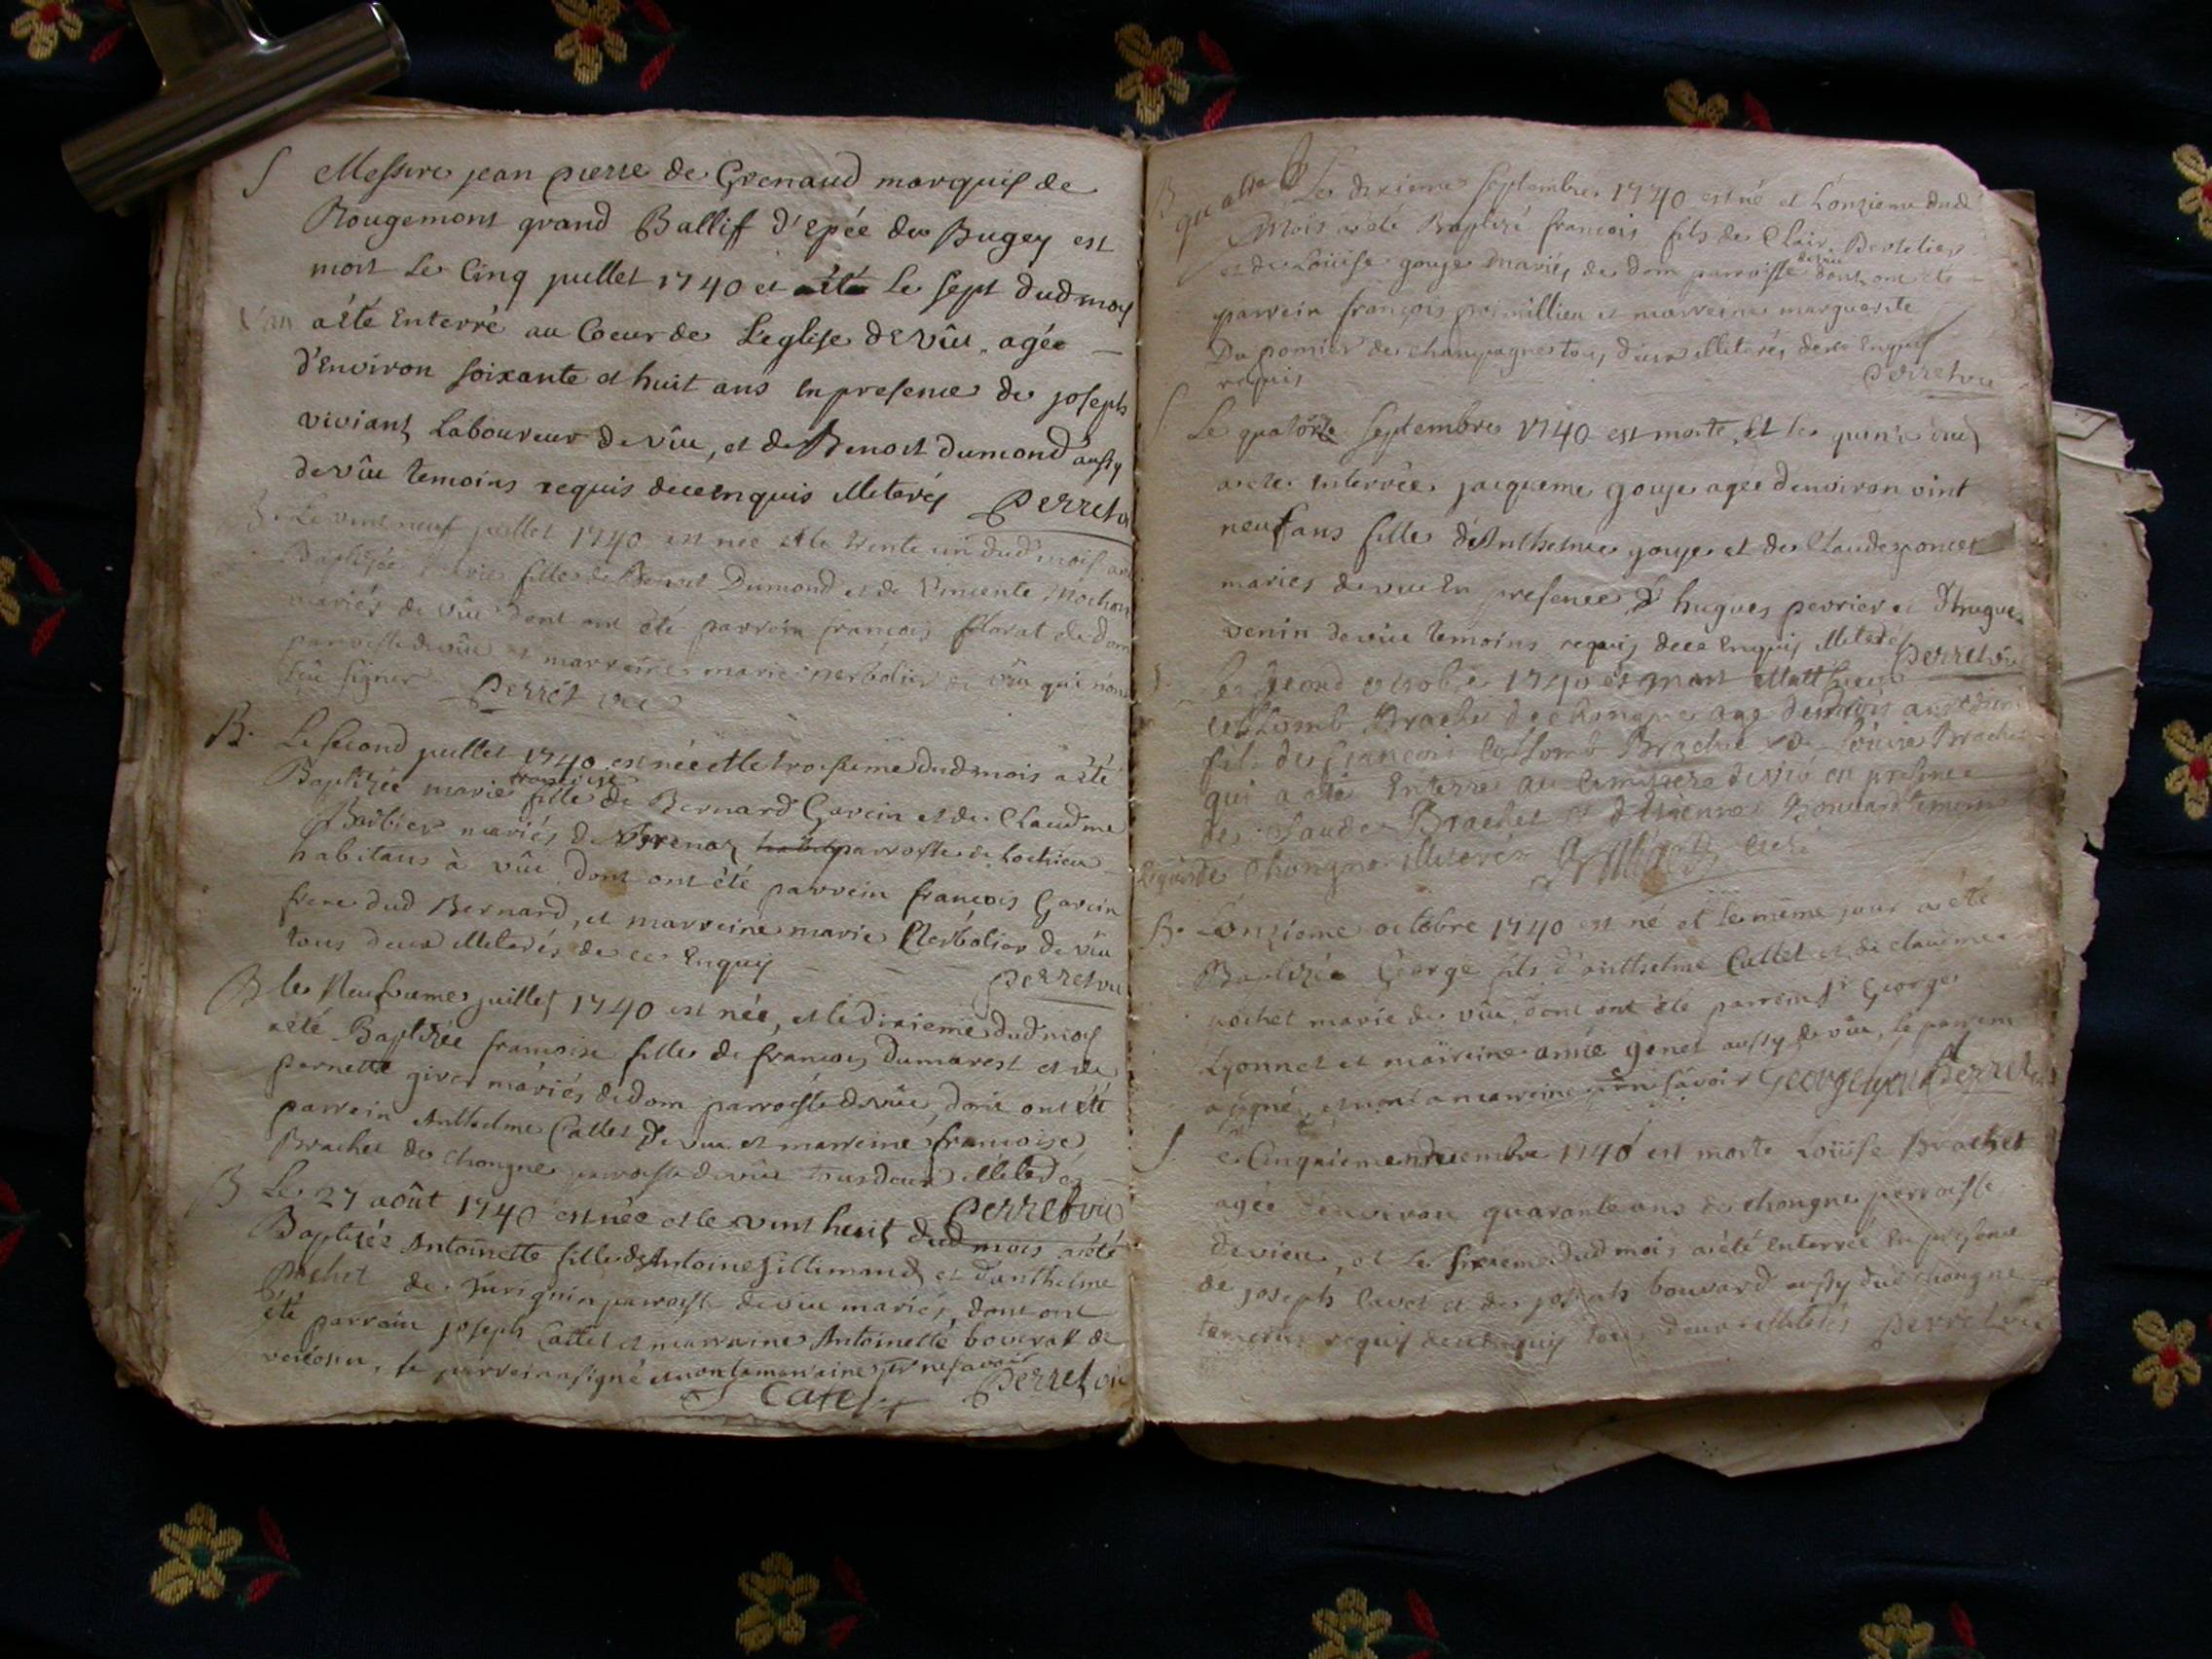 S Messire jean pierre de Grenaud marquis de
Rougemont grand Ballif d'Epée du Bugey est
mort Le Cinq juillet 1740 et Le sept dud moy
a été Enterré au Coeur de L'eglise de vîu, agée
d'Environ soixante et huit ans En presence de joseph
viviant Laboureur de vîu, et de Benoit dumond aussy
de vîu temoins requis de ce enquis illiterés Perret
B. Le vint neuf juillet 1740 est née et le trente un dud mois
Baptizée fille de Benoit Dumond et de Vincente Mochon
mariés de vîu dont ont été parrein françois de dom
parroisse de vîu et marreine marie de vîu qui n'ont
sçu signer Perret
B. Le second juillet 1740 est née et le troisieme dud mois a été
Baptizée marie françoise fille de Bernard Garcin et de Claudme
Barbier mariés de parroisse de Lochieu
habitans à vîu dont ont été parrein françois Garcin
frere dud Bernard, et marreine marie de vîu
tous deux illiterés de ce Enquis Perret vîu
B le Neufvieme juillet 1740 est née, et le dixieme dud moy
a été Baptizée francoise fille de francois Dumarest et de
pernette mariés de dom parroisse de vîu, dont ont été
parrein Anthelme Callet de vîu et marreine francoise
Brachet de chongne parroisse de vîu tous deux illiterés
Perret vîu
B Le 27 août 1740 est née et le vint huit dud mois a été
Baptizée Antoinette fille de Antoine et d'anthelme
pochet de parroisse de viu mariés, dont ont
été parrain joseph Callet et marraine Antoinette de
le parrein a signé et non la marraine pr ne savoir
Catet Perret
B Le dixieme septembre 1740 est né et L'onzieme dud
Mois a été Baptizé francois fils de Clair
et de Louise gouje mariés de dom parroisse de viu dont ont été
parrein françois et marreine marguerite
Du pomier de champagne tous deux illiterés de ce Enquis
requis Perret viu
S Le quatorze septembre 1740 est morte, Et le dud
a été Enterrée jaqueme gouje agée d'environ vint
neuf ans fille d'Anthelme gouje et de Claude
mariés de viu En presence d'hugues perrier et
venin de viu temoins requis de ce Enquis illiterés Perret viu
S. Le second octobre 1740 est mort Matthieu
Collomb Brachet de chongne agé de
fils de francois Collomb Brachet et de Louise Brachet
qui a été Enterré au cimetiere de viu en presence
de Claude Brachet et d'Etienne Bouvard temoins
de chongne illiterés
B. L'onzieme octobre 1740 est né et le même jour a été
Baptizée George fils d'anthelme Callet et de claudme
pochet marie de vîu, dont ont été parrein Sr George
Lyonnet et maireine anne genet aussy de vîu, le parrein
a signé, et non la marreine savoir Perret
S. Le Cinquieme decembre 1740 est morte Loüise Brachet
agée d'environ quarante ans de chongne parroisse
de vieu, et le sixieme dud mois a été Enterrée En presence
de joseph et de joseph bouvard aussy dud chongne
temoins requis de ce enquis tous deux illiterés Perret viu